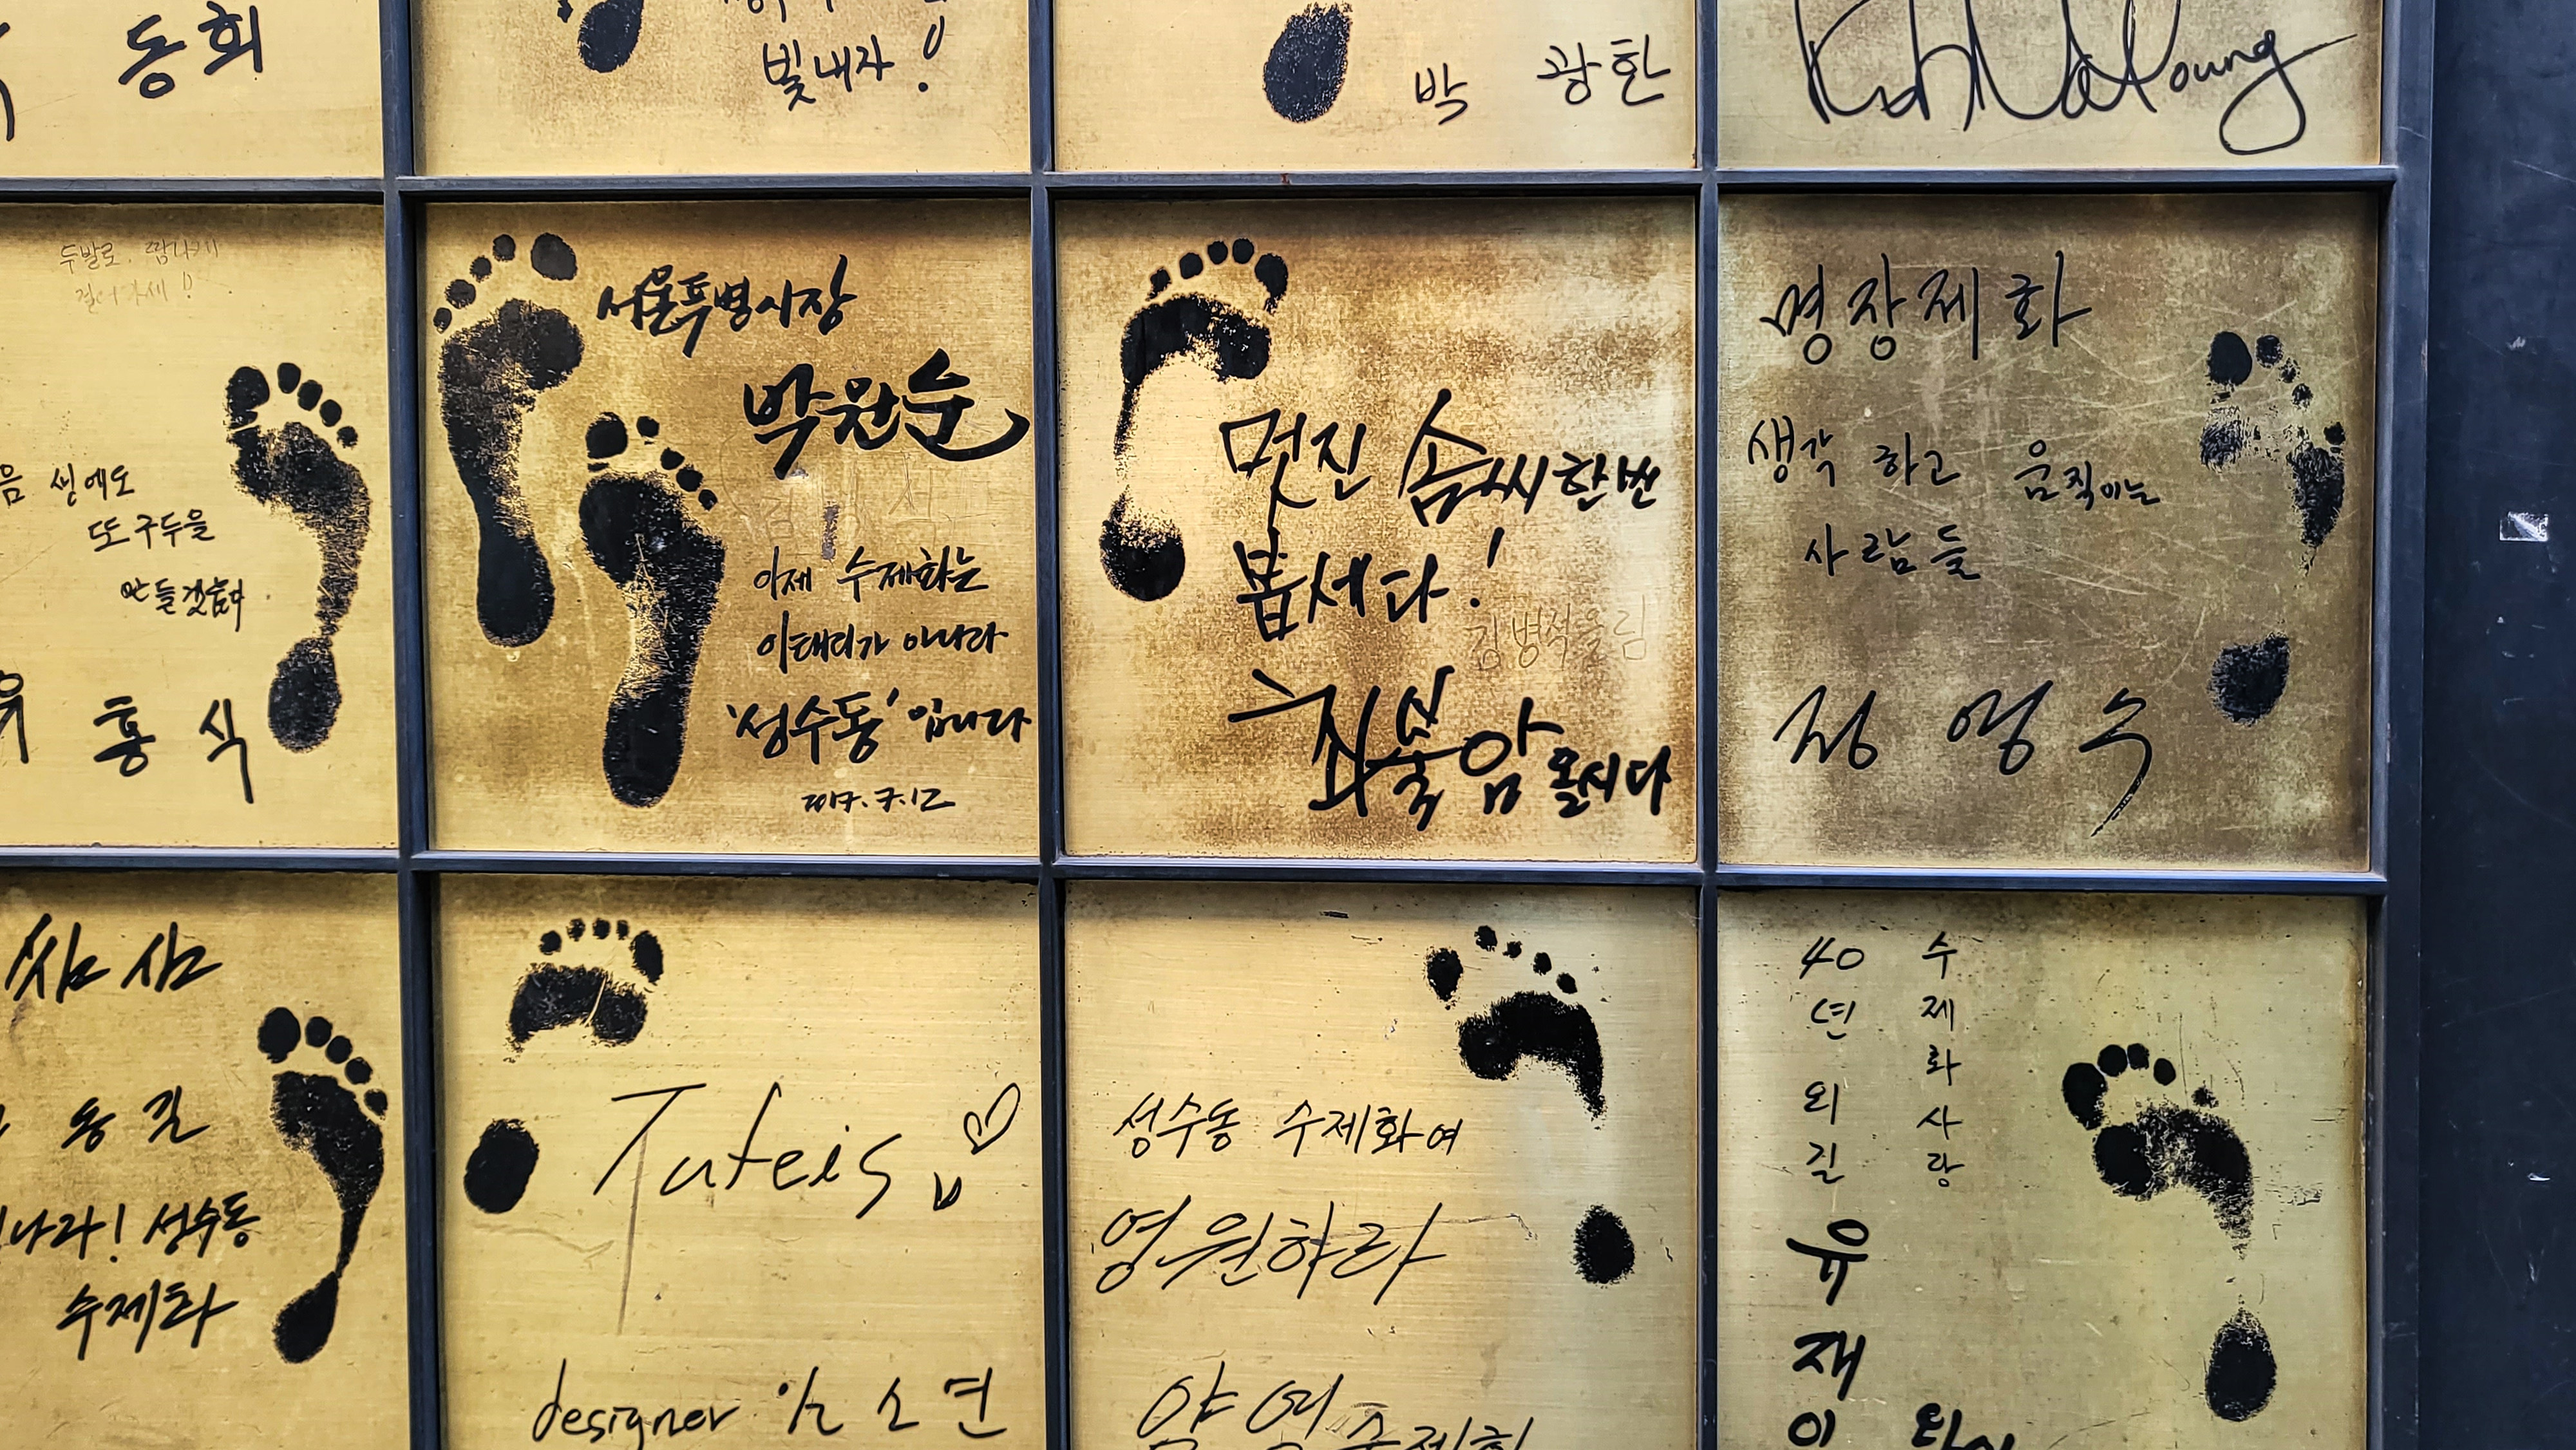 동희
빛내자!
박 광환
두발로.
음 생에도
또 구두을
만들겠습니다.
유 홍 식
서울특별시장
박원순
이제 수제화는
이태리가 아니라
'성수동'입니다
2017.7.12
멋진 솜씨 한번
봅세다!
김병석올림
최불암 올시다
명장제화
생각 하고 움직이는
사람들
정 영 수
동길
나라! 성수동
수제화
Tuteis
designer 소연
성수동 수제화여
영원하라
수제화사랑
40년 외길
유재이